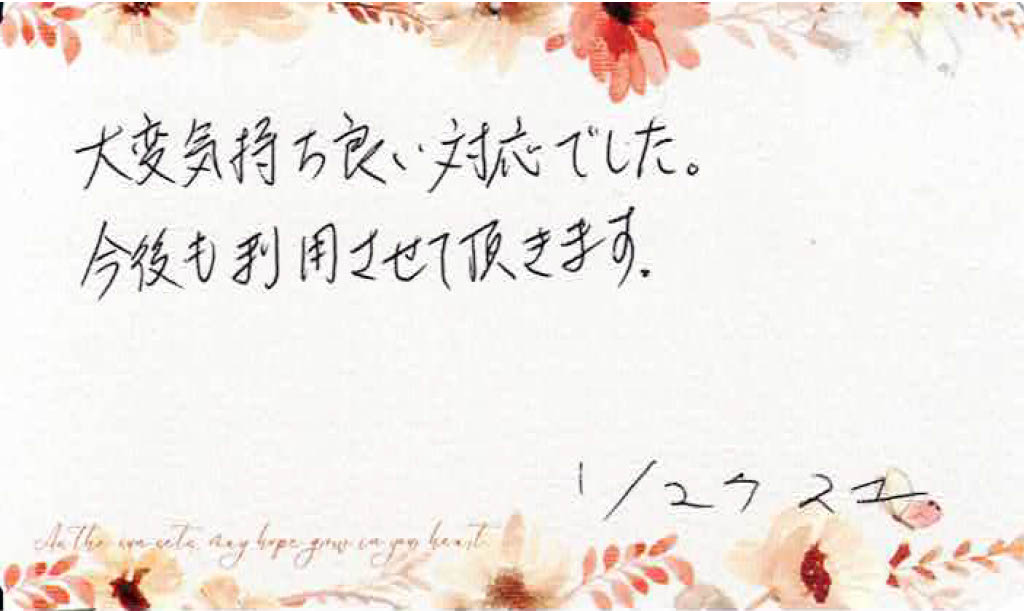 大変気持ち良い対応でした。
今後も利用させて頂きます。
1/27 スエ
may hope grow in your heart.